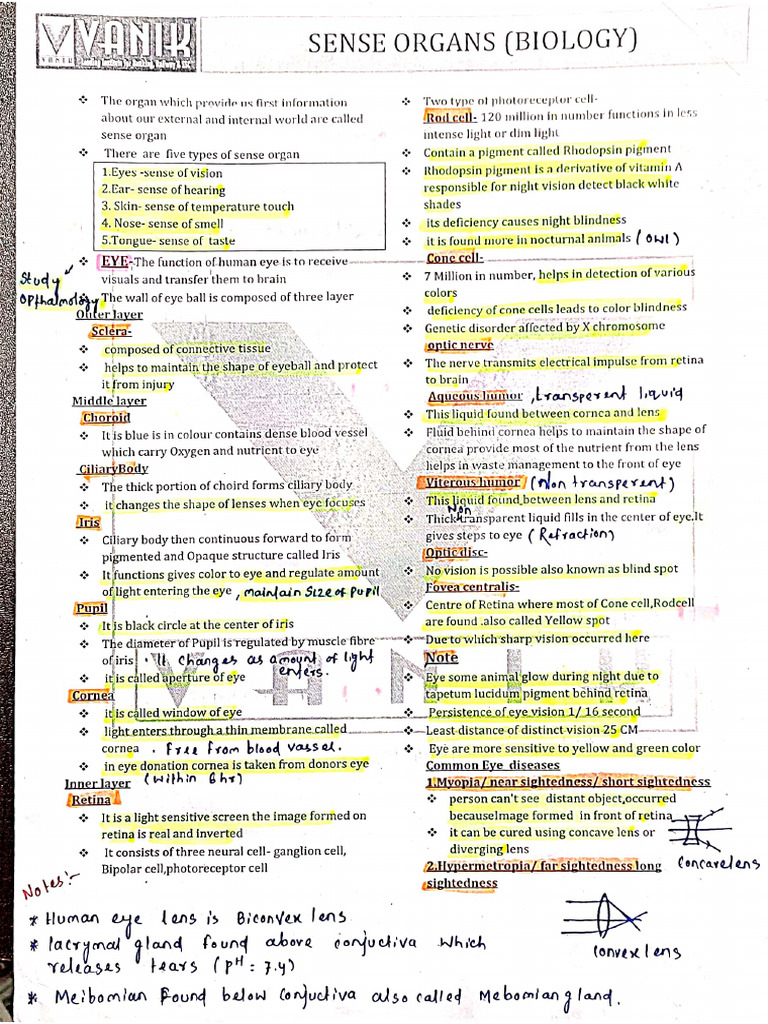 VANIK
VANIK
SENSE ORGANS (BIOLOGY)
❖ The organ which provide us first information
about our external and internal world are called
sense organ
❖ There are five types of sense organ
1.Eyes -sense of vision
2.Ear- sense of hearing
3. Skin- sense of temperature touch
4. Nose- sense of smell
5.Tongue- sense of taste
❖ EYE-The function of human eye is to receive
visuals and transfer them to brain
Study
Opthalmology
The wall of eye ball is composed of three layer
Outer layer
Sclera-
❖ composed of connective tissue
❖ helps to maintain the shape of eyeball and protect
it from injury
Middle layer
Choroid
❖ It is blue is in colour contains dense blood vessel
which carry Oxygen and nutrient to eye
CiliaryBody
❖ The thick portion of choird forms ciliary body
❖ it changes the shape of lenses when eye focuses
Iris
❖ Ciliary body then continuous forward to form
pigmented and Opaque structure called Iris
❖ It functions gives color to eye and regulate amount
of light entering the eye , maintain size of Pupil
Pupil
❖ It is black circle at the center of iris
❖ The diameter of Pupil is regulated by muscle fibre
of iris . It changes as amount of light
enters.
❖ it is called aperture of eye
Cornea
❖ it is called window of eye
❖ light enters through a thin membrane called
cornea . free from blood vassel.
❖ in eye donation cornea is taken from donors eye
(within 6hr)
Inner layer
Retina
❖ It is a light sensitive screen the image formed on
retina is real and Inverted
❖ It consists of three neural cell- ganglion cell,
Bipolar cell,photoreceptor cell
❖ Two type of photoreceptor cell-
Rod cell- 120 million in number functions in less
intense light or dim light
❖ Contain a pigment called Rhodopsin pigment
❖ Rhodopsin pigment is a derivative of vitamin A
responsible for night vision detect black white
shades
❖ its deficiency causes night blindness
❖ it is found more in nocturnal animals (owl)
Cone cell-
❖ 7 Million in number, helps in detection of various
colors
❖ deficiency of cone cells leads to color blindness
❖ Genetic disorder affected by X chromosome
optic nerve
❖ The nerve transmits electrical impulse from retina
to brain
Aqueous humor , transperent liquid
❖ This liquid found between cornea and lens
❖ Fluid behind cornea helps to maintain the shape of
cornea provide most of the nutrient from the lens
helps in waste management to the front of eye
Viterous humor (Non transperent)
❖ This liquid found between lens and retina
Non
❖ Thick transparent liquid fills in the center of eye.It
gives steps to eye (Refraction)
Optic disc-
❖ No vision is possible also known as blind spot
Fovea centralis-
❖ Centre of Retina where most of Cone cell,Rodcell
are found .also called Yellow spot
❖ Due to which sharp vision occurred here
Note
❖ Eye some animal glow during night due to
tapetum lucidun pigment behind retina
❖ Persistence of eye vision 1/ 16 second
❖ Least distance of distinct vision 25 CM
❖ Eye are more sensitive to yellow and green color
Common Eye diseases
1.Myopia/ near sightedness/ short sightedness
❖ person can't see distant object,occurred
becauseImage formed in front of retina
❖ it can be cured using concave lens or
diverging lens
concave lens
2.Hypermetropia/ far sightedness long
sightedness
convex lens
VANIK
Notes:-
* Human eye lens is Biconvex lens
* lacrymal gland found above conjuctiva which
releases tears (pH = 7.4)
* Meibomian found below conjuctiva also called Mebomian gland.